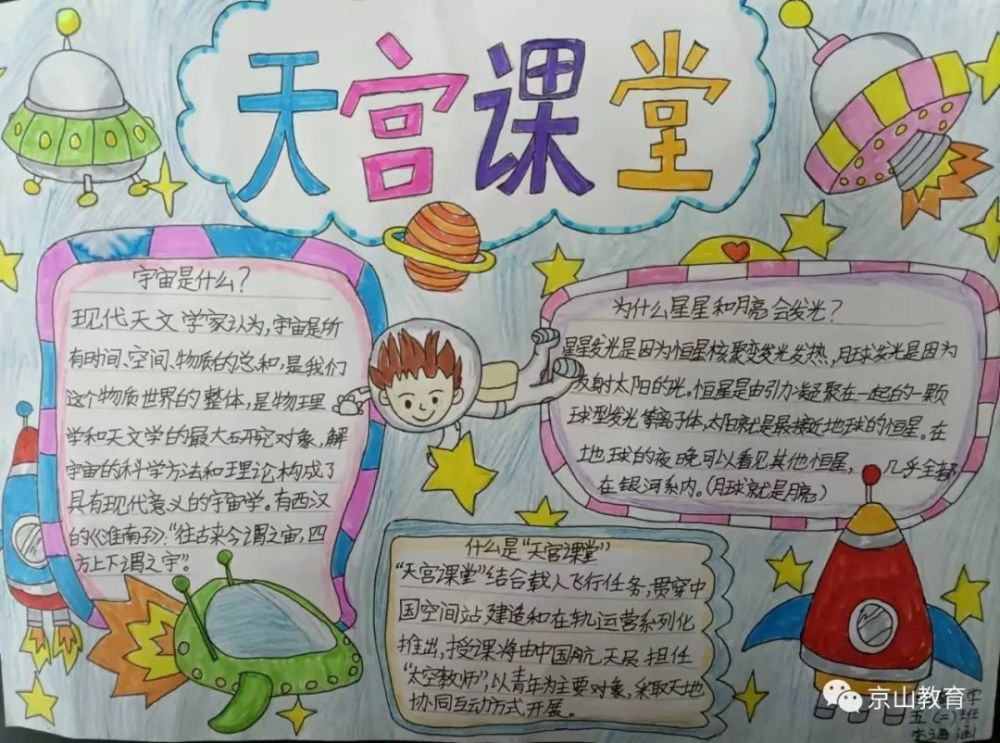 天宫课堂
宇宙是什么?
现代天文学家认为,宇宙是所
有时间、空间、物质的总和,是我们
这个物质世界的整体,是物理
学和天文学的最大研究对象,解
宇宙的科学方法和理论构成了
具有现代意义的宇宙学。有西汉
的《淮南子》:“往古来今谓之宙,四
方上下谓之宇”。
为什么星星和月亮会发光?
星星发光是因为恒星核聚变发光发热,月球发光是因为
反射太阳的光。恒星是由引力凝聚在一起的一颗
球型发光等离子体,太阳就是最接近地球的恒星。在
地球的夜晚可以看见其他恒星,几乎全都
在银河系内。(月球就是月亮)
什么是“天宫课堂”
“天宫课堂”结合载人飞行任务,贯穿中
国空间站建造和在轨运营系列化
推出,授课将由中国航天员担任
“太空教师”,以青年为主要对象,采取天地
协同互动方式开展。
京山教育
学
五(二)班
李